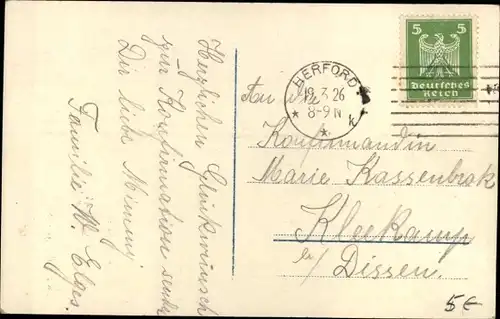 Herzlichen Glückwunsch
zur Konfirmation sendet
Dir liebe Mimmy
Familie W. Elges.
5 5
Deutsches
Reich
HERFORD
19.3.26
8-9 N
* k *
*
An die
Konfirmandin
Marie Kassenbrok
Kleekamp
b/ Dissen.
5€